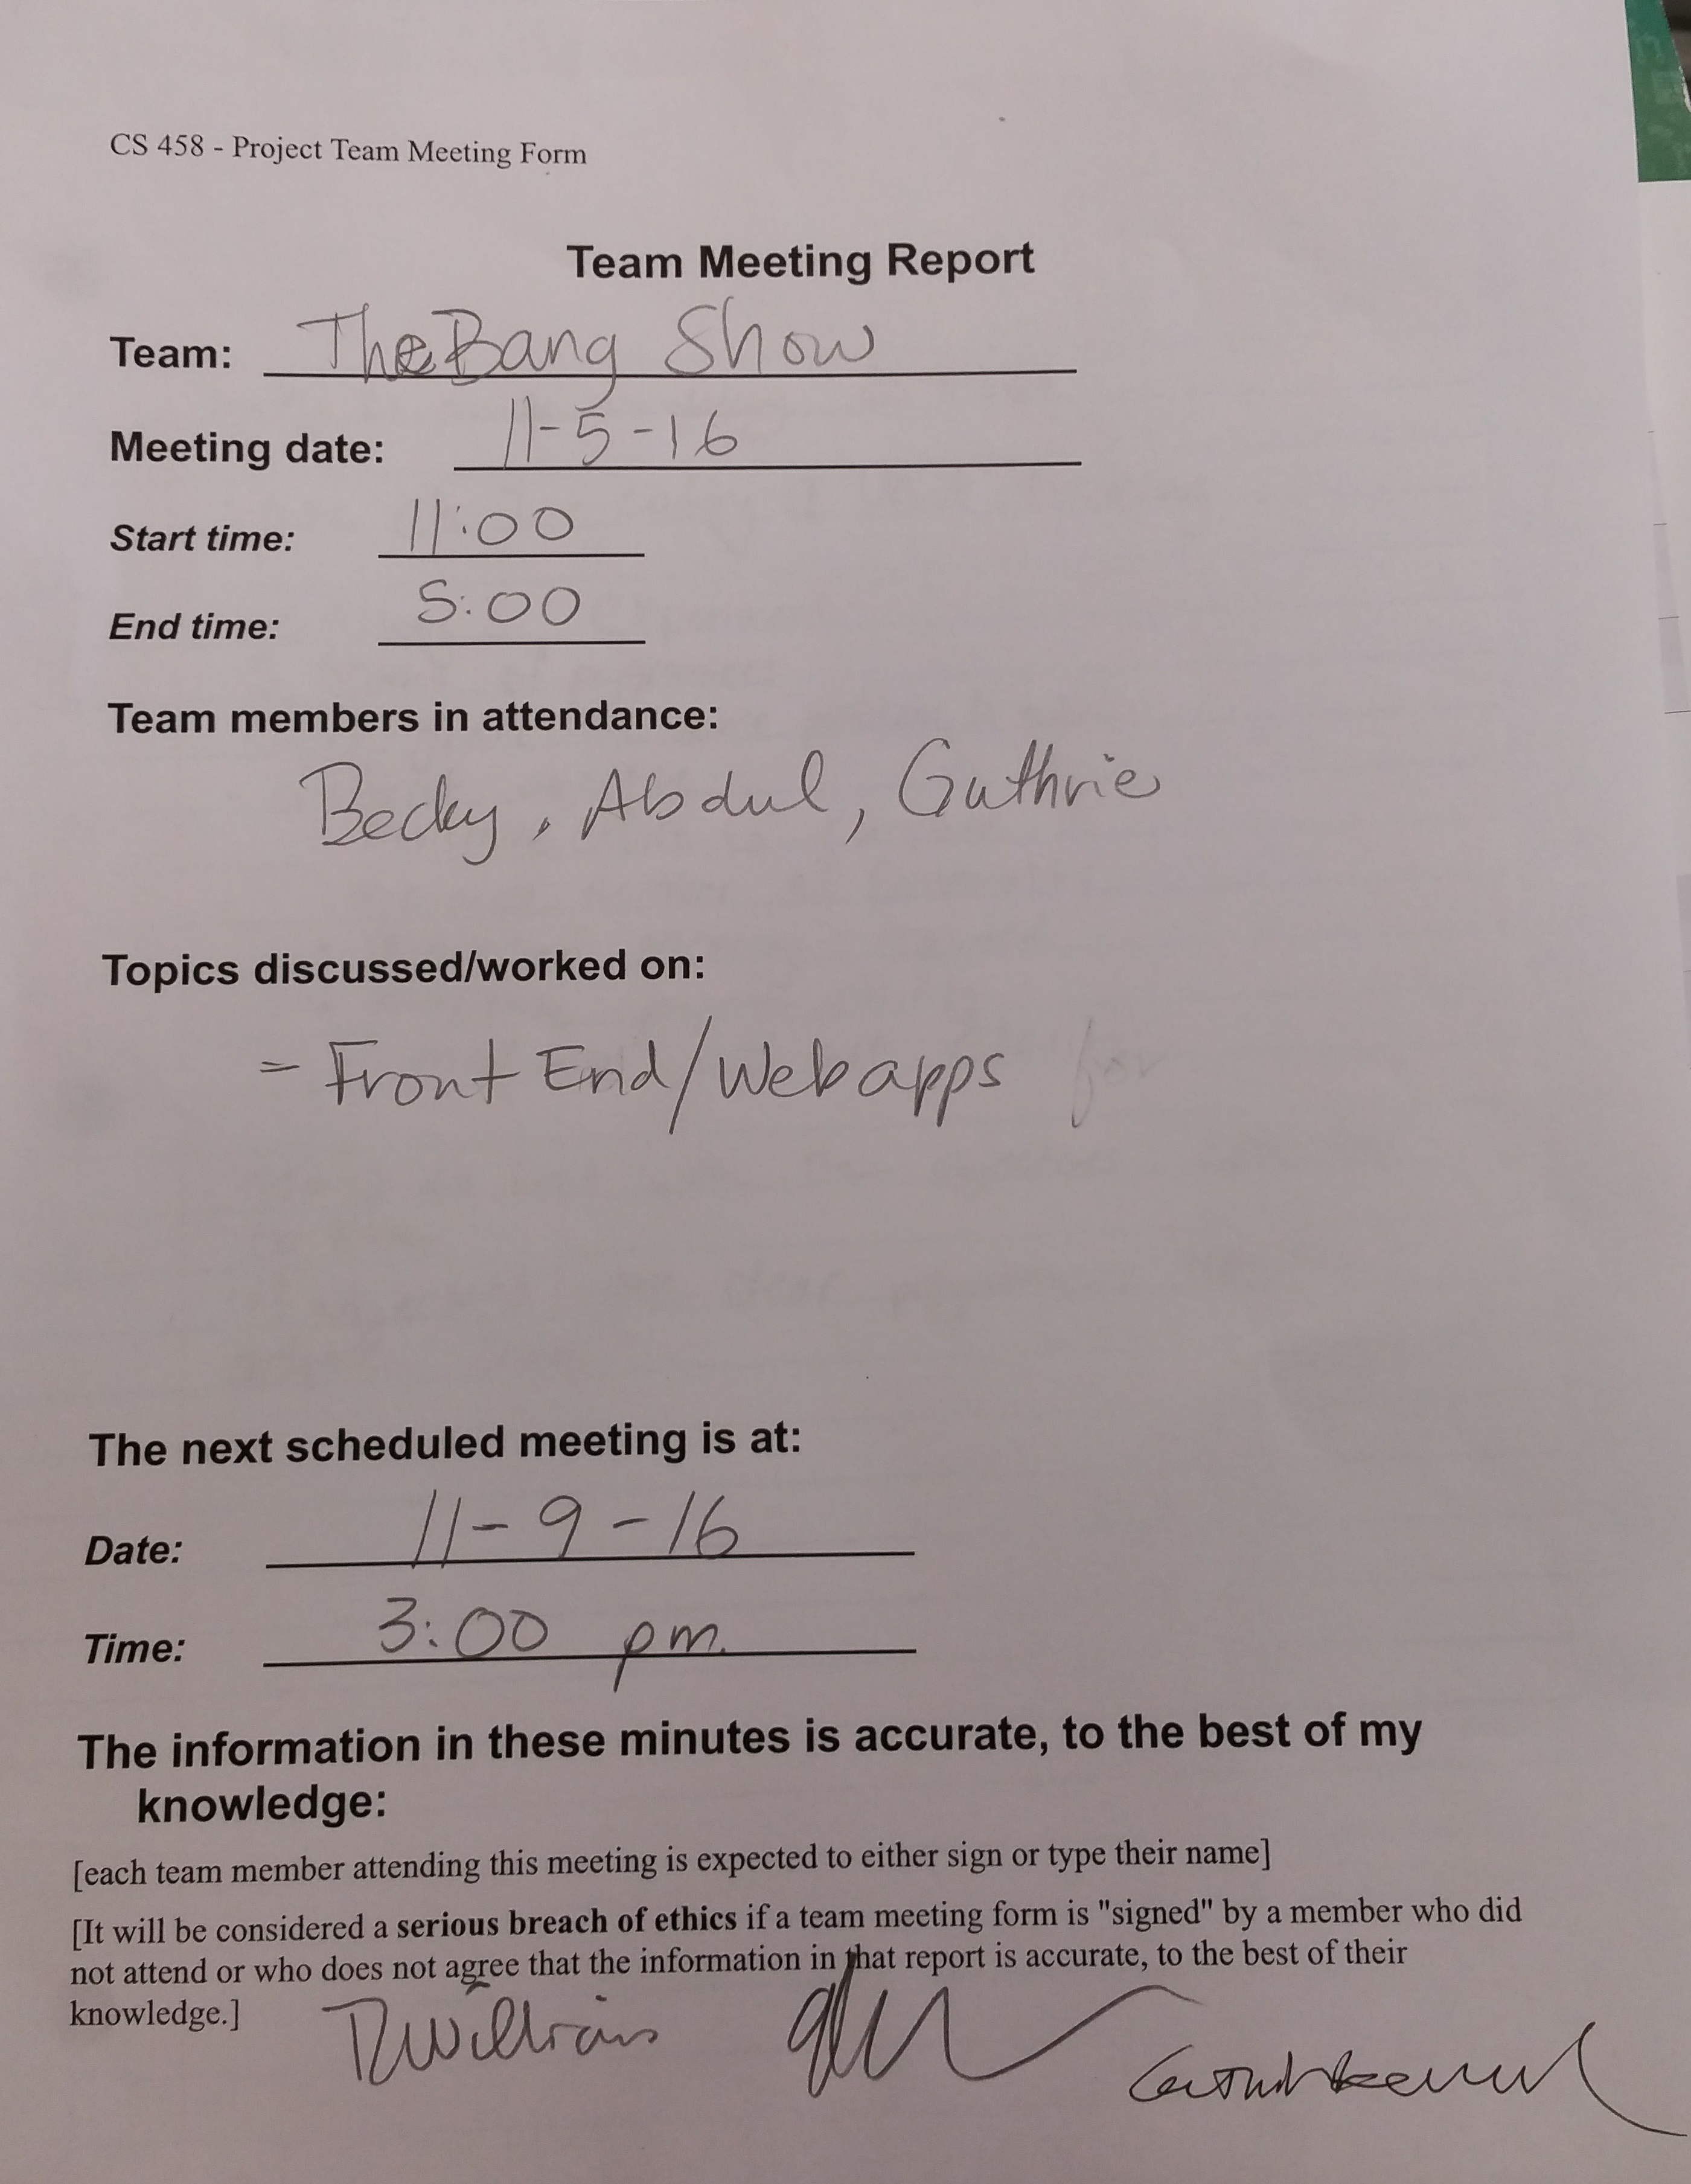 CS 458 - Project Team Meeting Form
Team Meeting Report
Team: The Bang Show
Meeting date: 11-5-16
Start time: 11:00
End time: 5:00
Team members in attendance:
Becky, Abdul, Guthrie
Topics discussed/worked on:
- Front End/Web apps for
The next scheduled meeting is at:
Date: 11-9-16
Time: 3:00 pm.
The information in these minutes is accurate, to the best of my
knowledge:
[each team member attending this meeting is expected to either sign or type their name]
[It will be considered a serious breach of ethics if a team meeting form is "signed" by a member who did
not attend or who does not agree that the information in that report is accurate, to the best of their
knowledge.]